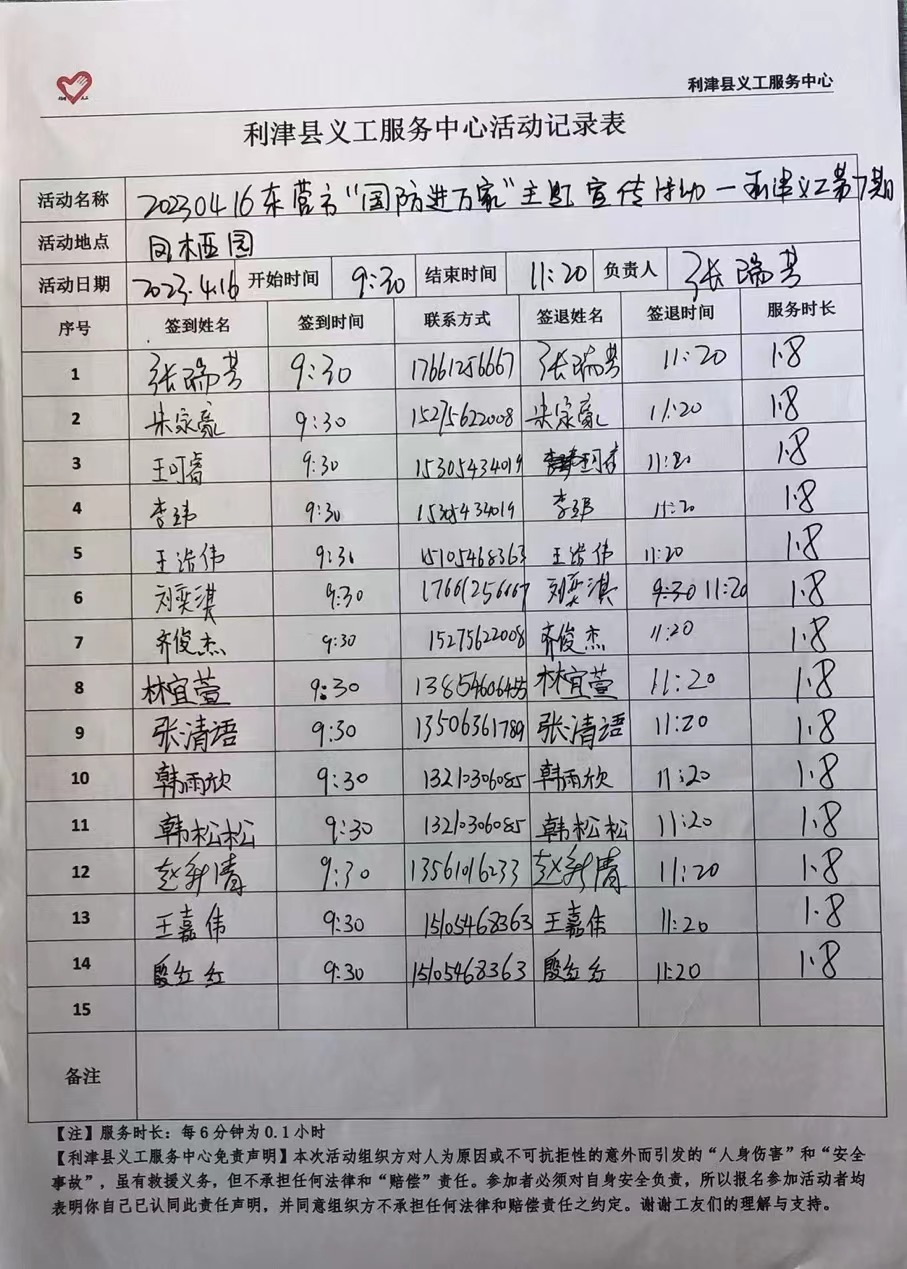 利津县义工服务中心
利津县义工服务中心活动记录表
活动名称 20230416东营市“国防进万家”主题宣传活动—利津义工第7期
活动地点 凤栖园
活动日期 2023.4.16 开始时间 9:30 结束时间 11:20 负责人 张瑞芳
序号 签到姓名 签到时间 联系方式 签退姓名 签退时间 服务时长
1 张瑞芳 9:30 17661256667 张瑞芳 11:20 1.8
2 宋家豪 9:30 15275622008 宋家豪 11:20 1.8
3 王可睿 9:30 15305434019 王可睿 11:20 1.8
4 李玮 9:30 15305434019 李玮 11:20 1.8
5 王浩伟 9:30 15105468363 王浩伟 11:20 1.8
6 刘奕淇 9:30 17661256667 刘奕淇 9:30 11:20 1.8
7 齐俊杰 9:30 15275622008 齐俊杰 11:20 1.8
8 林宜萱 9:30 13854606455 林宜萱 11:20 1.8
9 张清语 9:30 13506361789 张清语 11:20 1.8
10 韩雨欣 9:30 13210306085 韩雨欣 11:20 1.8
11 韩松松 9:30 13210306085 韩松松 11:20 1.8
12 赵新清 9:30 13561016233 赵新清 11:20 1.8
13 王嘉伟 9:30 15105468363 王嘉伟 11:20 1.8
14 殷红红 9:30 15105468363 殷红红 11:20 1.8
15
备注
【注】服务时长：每6分钟为0.1小时
【利津县义工服务中心免责声明】本次活动组织方对人为原因或不可抗拒性的意外而引发的“人身伤害”和“安全
事故”，虽有救援义务，但不承担任何法律和“赔偿”责任。参加者必须对自身安全负责，所以报名参加活动者均
表明你自己已认同此责任声明，并同意组织方不承担任何法律和赔偿责任之约定。谢谢工友们的理解与支持。